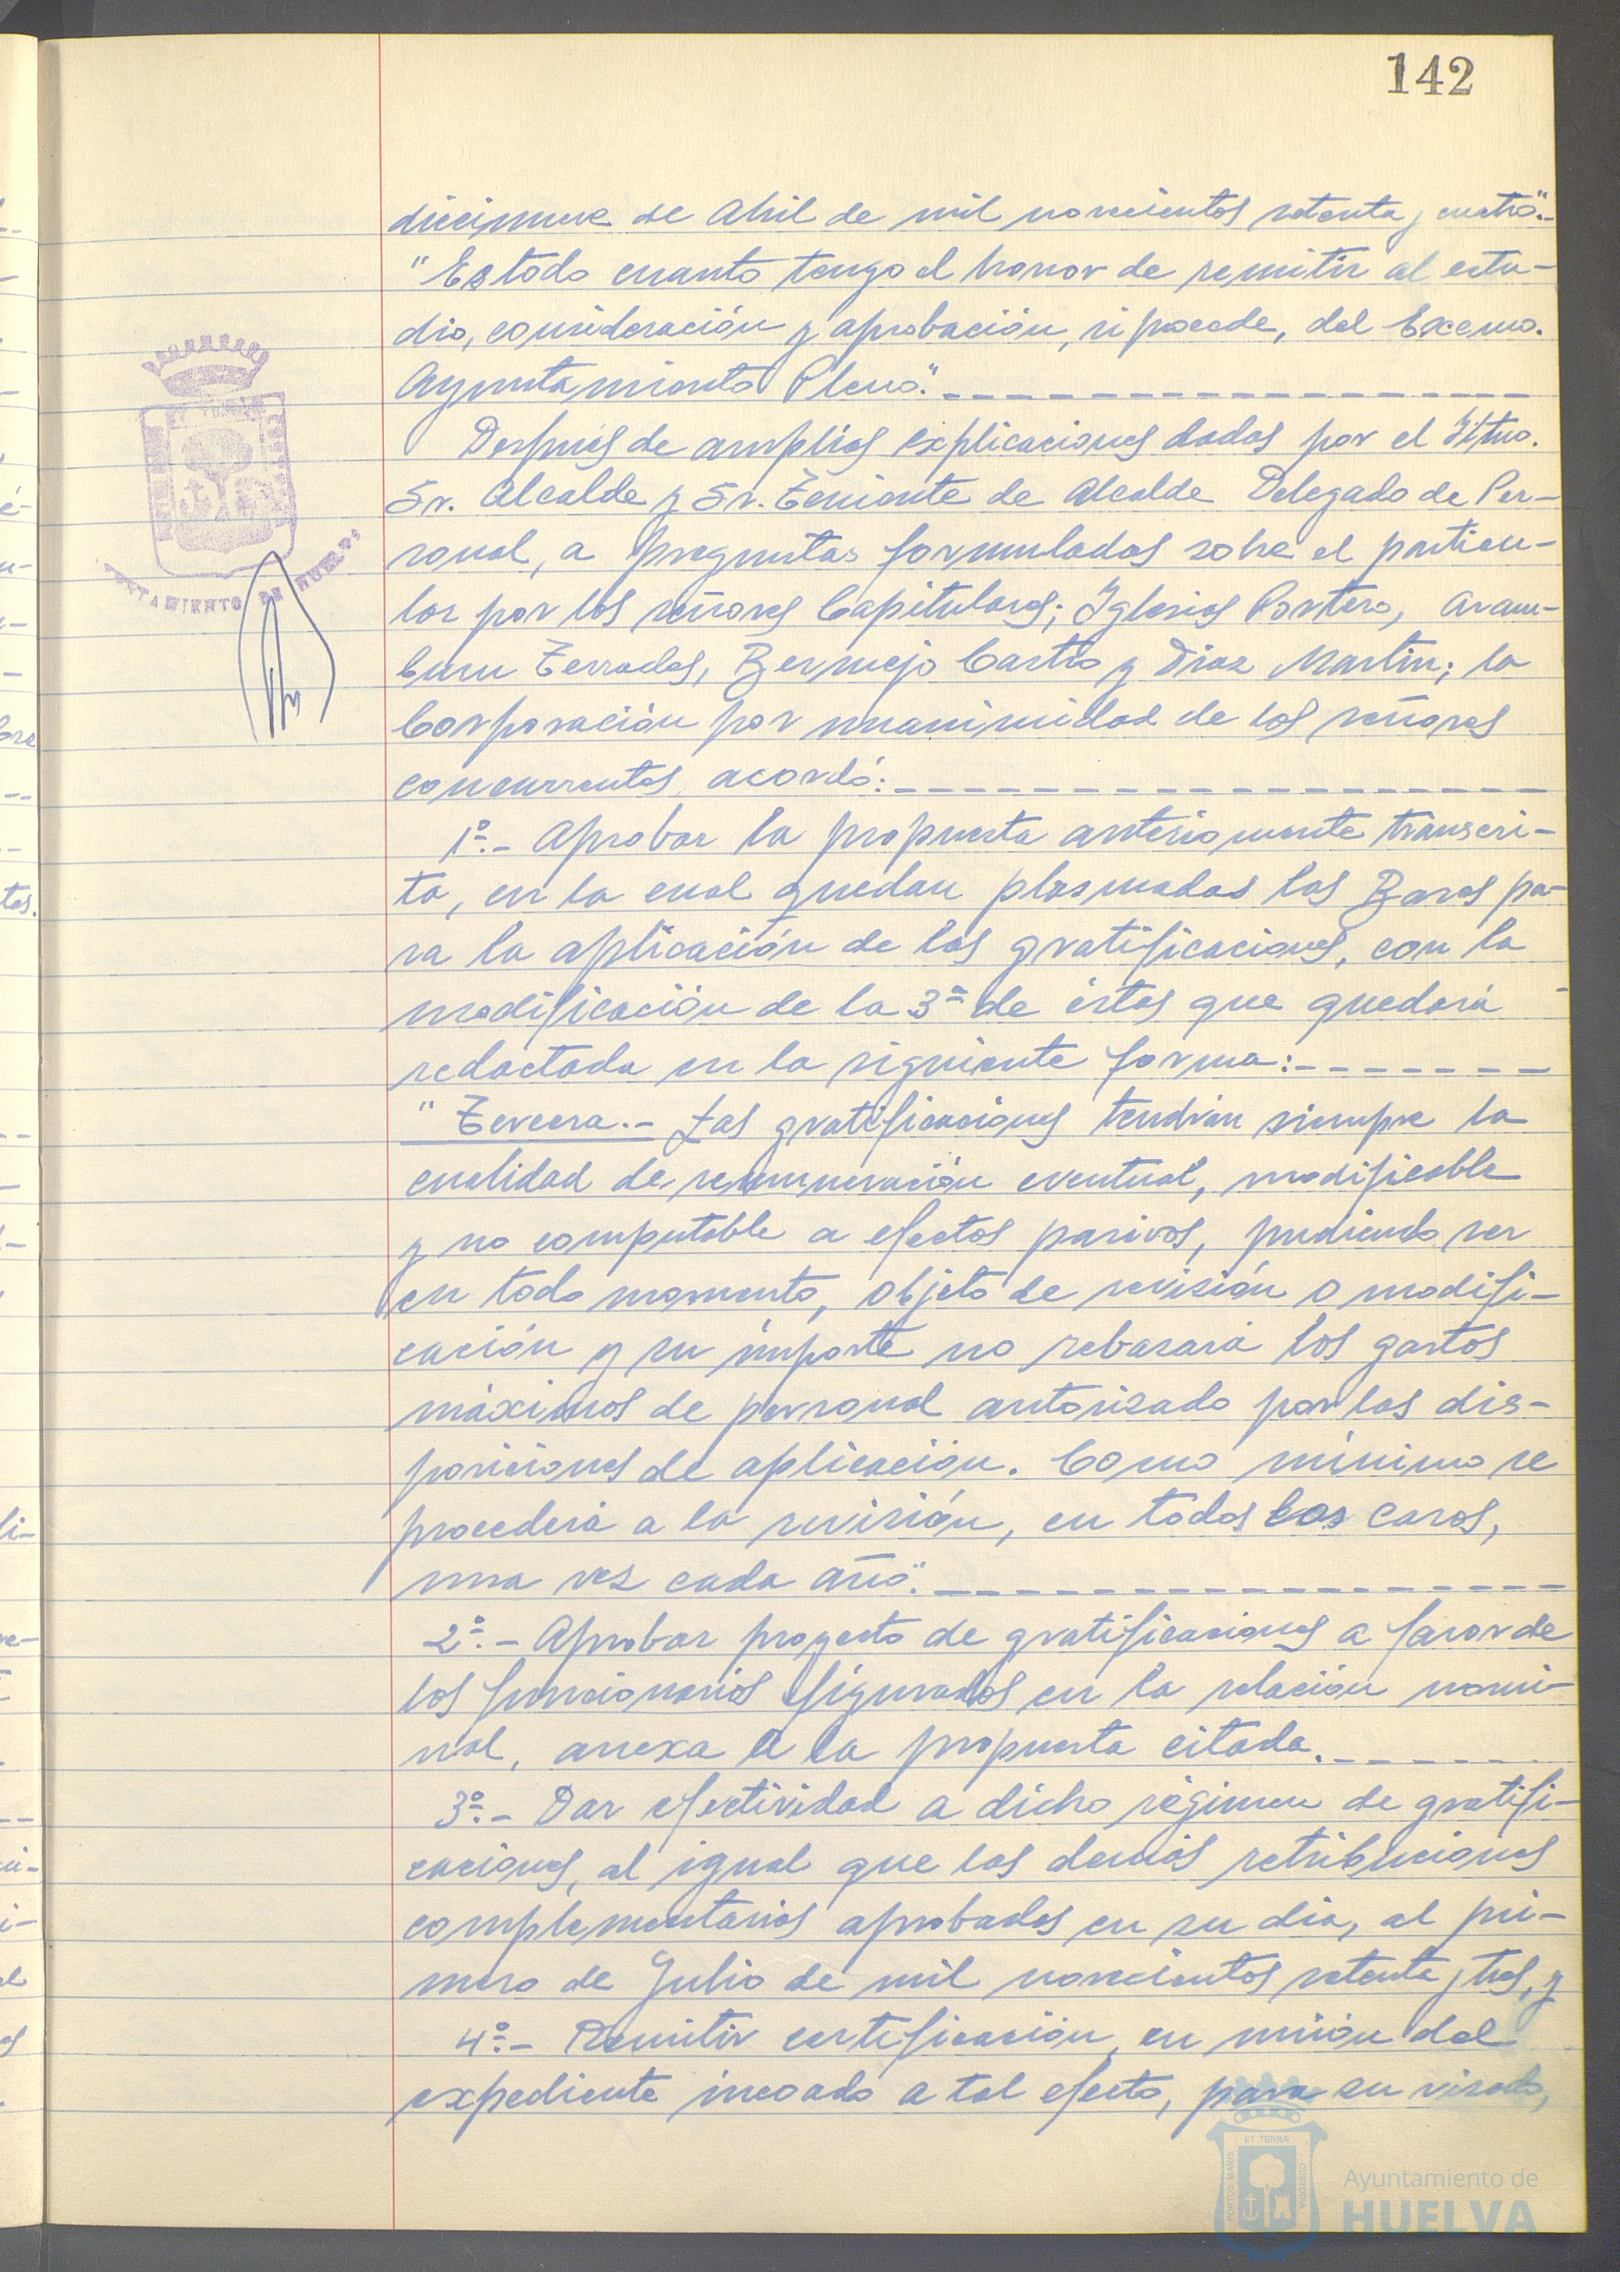 142
diecinueve de Abril de mil novecientos setenta y cuatro".-
"Es todo cuanto tengo el honor de remitir al estu-
dio, consideración y aprobación, si procede, del Excmo.
Ayuntamiento Pleno".
Después de amplias explicaciones dadas por el Iltmo.
Sr. Alcalde y Sr. Teniente de Alcalde Delegado de Per-
sonal, a preguntas formuladas sobre el particu-
lar por los señores Capitulares; Iglesias Portero, Aram-
buru Terrades, Bermejo Castro y Díaz Martín; la
Corporación por unanimidad de los señores
concurrentes, acordó:
1º.- Aprobar la propuesta anteriomente transcri-
ta, en la cual quedan plasmadas las Bases pa-
ra la aplicación de las gratificaciones, con la
modificación de la 3ª de éstas que quedará
redactada en la siguiente forma:
"Tercera.- Las gratificaciones tendrán siempre la
cualidad de remuneración eventual, modificable
y no computable a efectos pasivos, pudiendo ser
en todo momento, objeto de revisión o modifi-
cación y su importe no rebasará los gastos
máximos de personal autorizado por las dis-
posiciones de aplicación. Como mínimo se
procederá a la revisión, en todos los casos,
una vez cada año".
2º.- Aprobar proyecto de gratificaciones a favor de
los funcionarios figurados en la relación nomi-
nal, anexa a la propuesta citada.
3º.- Dar efectividad a dicho régimen de gratifi-
caciones, al igual que las demás retribuciones
complementarias aprobadas en su día, al pri-
mero de Julio de mil novecientos setenta y tres, y
4º.- Remitir certificación, en unión del
expediente incoado a tal efecto, para su visado,
Ayuntamiento de
HUELVA